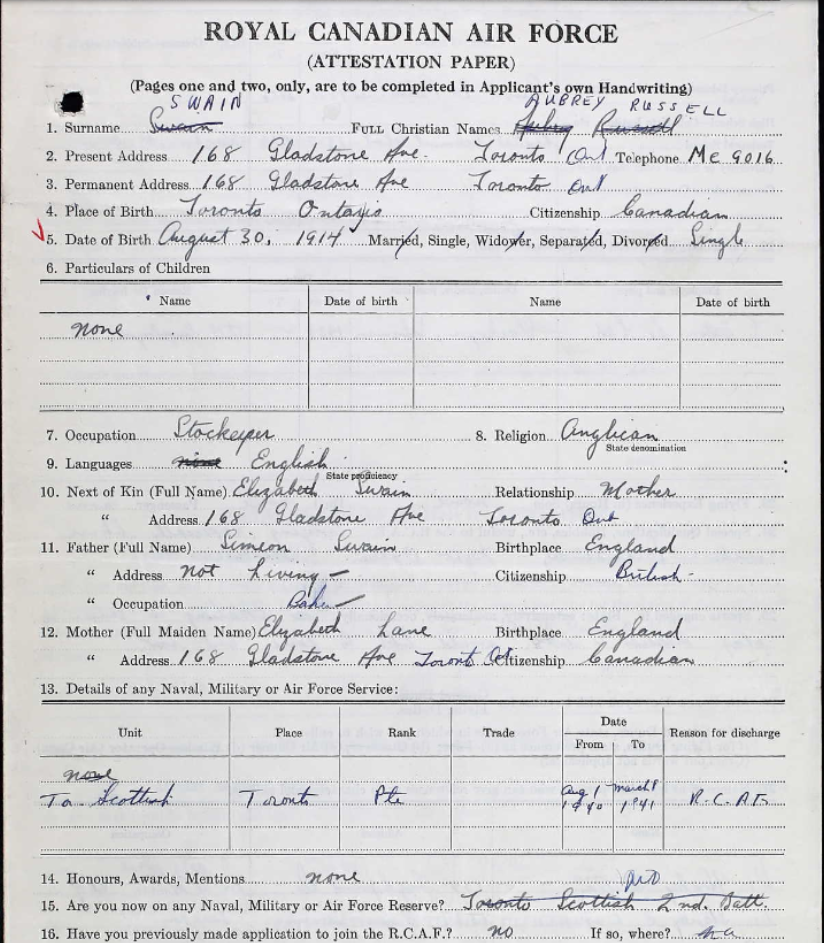 ROYAL CANADIAN AIR FORCE
(ATTESTATION PAPER)
(Pages one and two, only, are to be completed in Applicant's own Handwriting)
SWAIN AUBREY RUSSELL
1. Surname Swain FULL Christian Names Aubrey Russell
2. Present Address 168 Gladstone Ave. Toronto Ont Telephone Me 9016
3. Permanent Address 168 Gladstone Ave Toronto Ont
4. Place of Birth Toronto Ontario Citizenship Canadian
5. Date of Birth August 30, 1914 Married, Single, Widower, Separated, Divorced Single
6. Particulars of Children
Name Date of birth Name Date of birth
none
7. Occupation Stockeeper 8. Religion Anglican
State denomination
9. Languages none English
State proficiency
10. Next of Kin (Full Name) Elizabeth Swain Relationship Mother
" Address 168 Gladstone Ave Toronto Ont
11. Father (Full Name) Simeon Swain Birthplace England
" Address not Living - Citizenship British -
" Occupation
12. Mother (Full Maiden Name) Elizabeth Lane Birthplace England
" Address 168 Gladstone Ave Toronto Ont Citizenship Canadian
13. Details of any Naval, Military or Air Force Service:
Date
Unit Place Rank Trade From To Reason for discharge
none
To. Scottish Toronto Pte Aug 1 1940 March 8 1941 R.C.A.F.
14. Honours, Awards, Mentions none
no
15. Are you now on any Naval, Military or Air Force Reserve? Toronto Scottish 2nd. Batt.
16. Have you previously made application to join the R.C.A.F.? no If so, where?